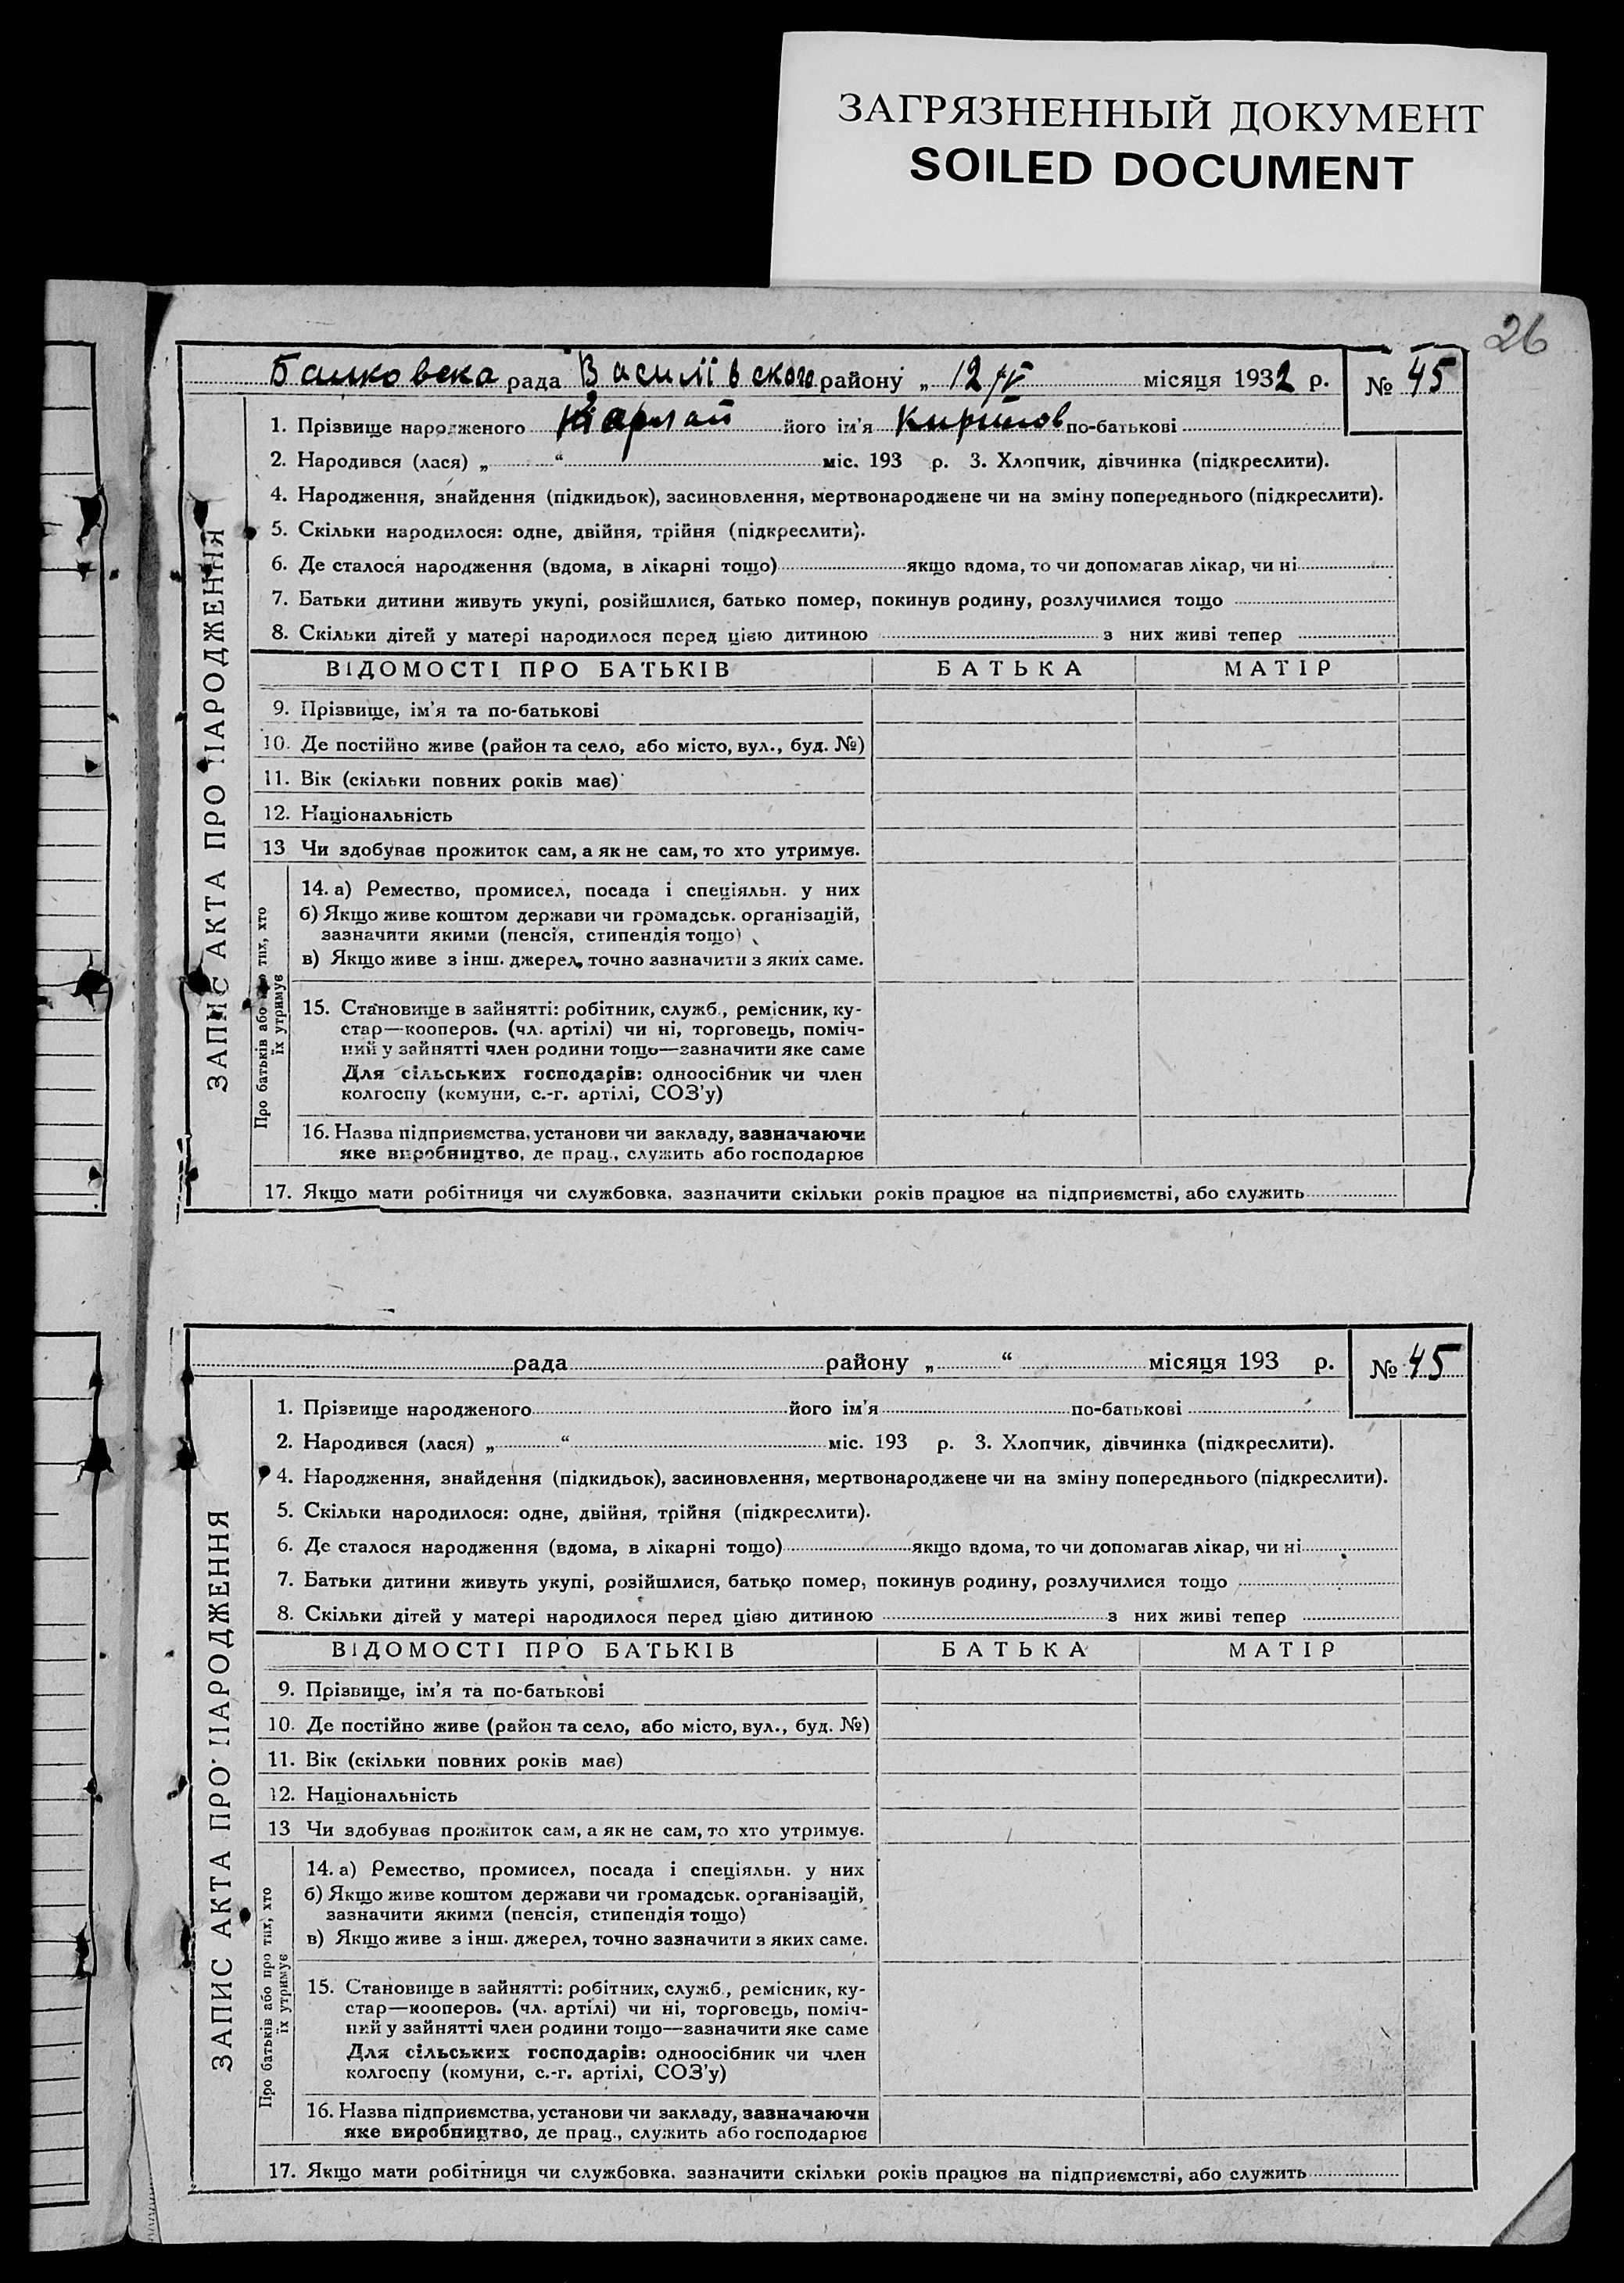 ЗАГРЯЗНЕННЫЙ ДОКУМЕНТ
SOILED DOCUMENT
26
Балковска рада Василівского району „12/IV місяця 1932 р. № 45
1. Прізвище народженого його ім’я по-батькові
2. Народився (лася) „ “ міс. 193 р. 3. Хлопчик, дівчинка (підкреслити).
4. Народження, знайдення (підкидьок), засиновлення, мертвонароджене чи на зміну попереднього (підкреслити).
5. Скільки народилося: одне, двійня, трійня (підкреслити).
6. Де сталося народження (вдома, в лікарні тощо) якщо вдома, то чи допомагав лікар, чи ні
7. Батьки дитини живуть укупі, розійшлися, батько помер, покинув родину, розлучилися тощо
8. Скільки дітей у матері народилося перед цією дитиною з них живі тепер
ВІДОМОСТІ ПРО БАТЬКІВ БАТЬКА МАТІР
9. Прізвище, ім’я та по-батькові
10. Де постійно живе (район та село, або місто, вул., буд. №)
11. Вік (скільки повних років має)
12. Національність
13 Чи здобував прожиток сам, а як не сам, то хто утримує.
14. а) Ремество, промисел, посада і спеціяльн. у них
б) Якщо живе коштом держави чи громадськ. організацій,
зазначити якими (пенсія, стипендія тощо)
в) Якщо живе з інш. джерел, точно зазначити з яких саме.
15. Становище в зайнятті: робітник, служб., ремісник, ку-
стар—кооперов. (чл. артілі) чи ні, торговець, поміч-
ний у зайнятті член родини тощо—зазначити яке саме
Для сільських господарів: одноосібник чи член
колгоспу (комуни, с.-г. артілі, СОЗ’у)
16. Назва підприємства, установи чи закладу, зазначаючи
яке виробництво, де прац., служить або господарює
17. Якщо мати робітниця чи службовка, зазначити скільки років працює на підприємстві, або служить
ЗАПИС АКТА ПРО НАРОДЖЕННЯ
Про батьків або про тих, хто
їх утримує
рада району „ “ місяця 193 р. № 45
1. Прізвище народженого його ім’я по-батькові
2. Народився (лася) „ “ міс. 193 р. 3. Хлопчик, дівчинка (підкреслити).
4. Народження, знайдення (підкидьок), засиновлення, мертвонароджене чи на зміну попереднього (підкреслити).
5. Скільки народилося: одне, двійня, трійня (підкреслити).
6. Де сталося народження (вдома, в лікарні тощо) якщо вдома, то чи допомагав лікар, чи ні
7. Батьки дитини живуть укупі, розійшлися, батько помер, покинув родину, розлучилися тощо
8. Скільки дітей у матері народилося перед цією дитиною з них живі тепер
ВІДОМОСТІ ПРО БАТЬКІВ БАТЬКА МАТІР
9. Прізвище, ім’я та по-батькові
10. Де постійно живе (район та село, або місто, вул., буд. №)
11. Вік (скільки повних років має)
12. Національність
13 Чи здобував прожиток сам, а як не сам, то хто утримує.
14. а) Ремество, промисел, посада і спеціяльн. у них
б) Якщо живе коштом держави чи громадськ. організацій,
зазначити якими (пенсія, стипендія тощо)
в) Якщо живе з інш. джерел, точно зазначити з яких саме.
15. Становище в зайнятті: робітник, служб., ремісник, ку-
стар—кооперов. (чл. артілі) чи ні, торговець, поміч-
ний у зайнятті член родини тощо—зазначити яке саме
Для сільських господарів: одноосібник чи член
колгоспу (комуни, с.-г. артілі, СОЗ’у)
16. Назва підприємства, установи чи закладу, зазначаючи
яке виробництво, де прац., служить або господарює
17. Якщо мати робітниця чи службовка, зазначити скільки років працює на підприємстві, або служить
ЗАПИС АКТА ПРО НАРОДЖЕННЯ
Про батьків або про тих, хто
їх утримує